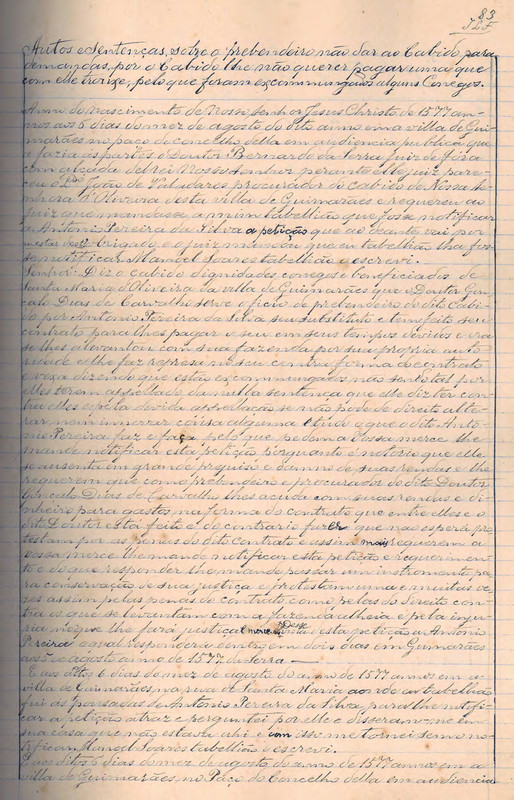 83
Autos e Sentenças, sobre o prebendeiro não dar ao Cabido para
demandas, por o Cabido lhe não querer pagar uma que
com elle trouxe, pelo que foram excommungados alguns Conegos.
Anno do Nascimento de Nosso Senhor Jesus Christo de 1577 an-
nos aos 5 dias do mez de agosto do dito anno em a villa de Gui-
marães no paço do concelho della em audiencia publica que
a fazia ás partes o Doutor Bernardo da Serra juiz de fóra
com alçada del-rei Nosso Senhor perante elle juiz pare-
ceu o João de Valladares procurador do Cabido de Nossa Se-
nhora d'Oliveira desta villa de Guimarães e requereu ao
juiz que mandasse a mim tabellião que fosse notificar
a Antonio Pereira da Silva a petição que ao deante vai por
estar obrigado e o juiz mandou que eu tabellião lha fos-
se notificar. Manoel Soares tabellião o escrevi.
Senhor: Diz o cabido dignidades conegos e beneficiados de
Santa Maria d'Oliveira da villa de Guimarães que o Doutor Gon-
çalo Dias de Carvalho serve o officio de prebendeiro do dito Cabi-
do por Antonio Pereira da Silva seu substituto e tem feito seu
contrato para lhes pagar o seu em seus tempos devidos e ora
se lhes alevantou com sua fazenda por sua propria auto-
ridade e lhe faz represa no seu contra forma do contrato
e voxa dizendo que estão excommungados não sendo tal por
elles terem appellado da nulla sentença que elle diz ter con-
tra elles e pela devida appellação se não pode de direito alte-
rar nem innovar cousa alguma e tudo o que o dito Anto-
nio Pereira faz e faça pelo que pedem a Vossa merce lhe
mande notificar esta petição porquanto é notorio que elle
se ausenta em grande prejuiso e damno de suas rendas e lhe
requerem que como prebendeiro e procurador do dito Doutor
Gonçalo Dias de Carvalho lhes acuda com suas rendas e di-
nheiro para gastos na forma do contrato que entre elles e o
dito Doutor está feito e do contrario fazer que não esperão pro-
testam por as penas do dito contrato e assim mais requerem a
vossa merce lhe mande notificar esta petição e requerimen-
to e do que responder lhe mande passar um instrumento pa-
ra conservação de sua justiça e protestam uma e muitas ve-
zes assim pelas penas do contrato como pelas do Direito con-
tra os que se levantam com a fazenda alheia e pela inju-
ria no que lhe fará justiça e merce. Disse vista esta petição a Antonio
Pereira a qual responderá em rez em dois dias em Guimarães
aos 5 de agosto anno de 1577 da Serra —
E aos ditos 6 dias do mez de agosto do anno de 1577 annos em a
villa de Guimarães na rua de Santa Maria aonde eu tabellião
fui ás pousadas de Antonio Pereira da Silva para lhe notifi-
car a petição atraz e perguntei por elle e disseram-me em
sua casa que não estava ahi e com isso me tornei sem o no-
tificar. Manoel Soares tabellião o escrevi.
E aos ditos 6 dias do mez de agosto do anno de 1577 annos em a
villa de Guimarães, no Paço do Concelho della em audiencia